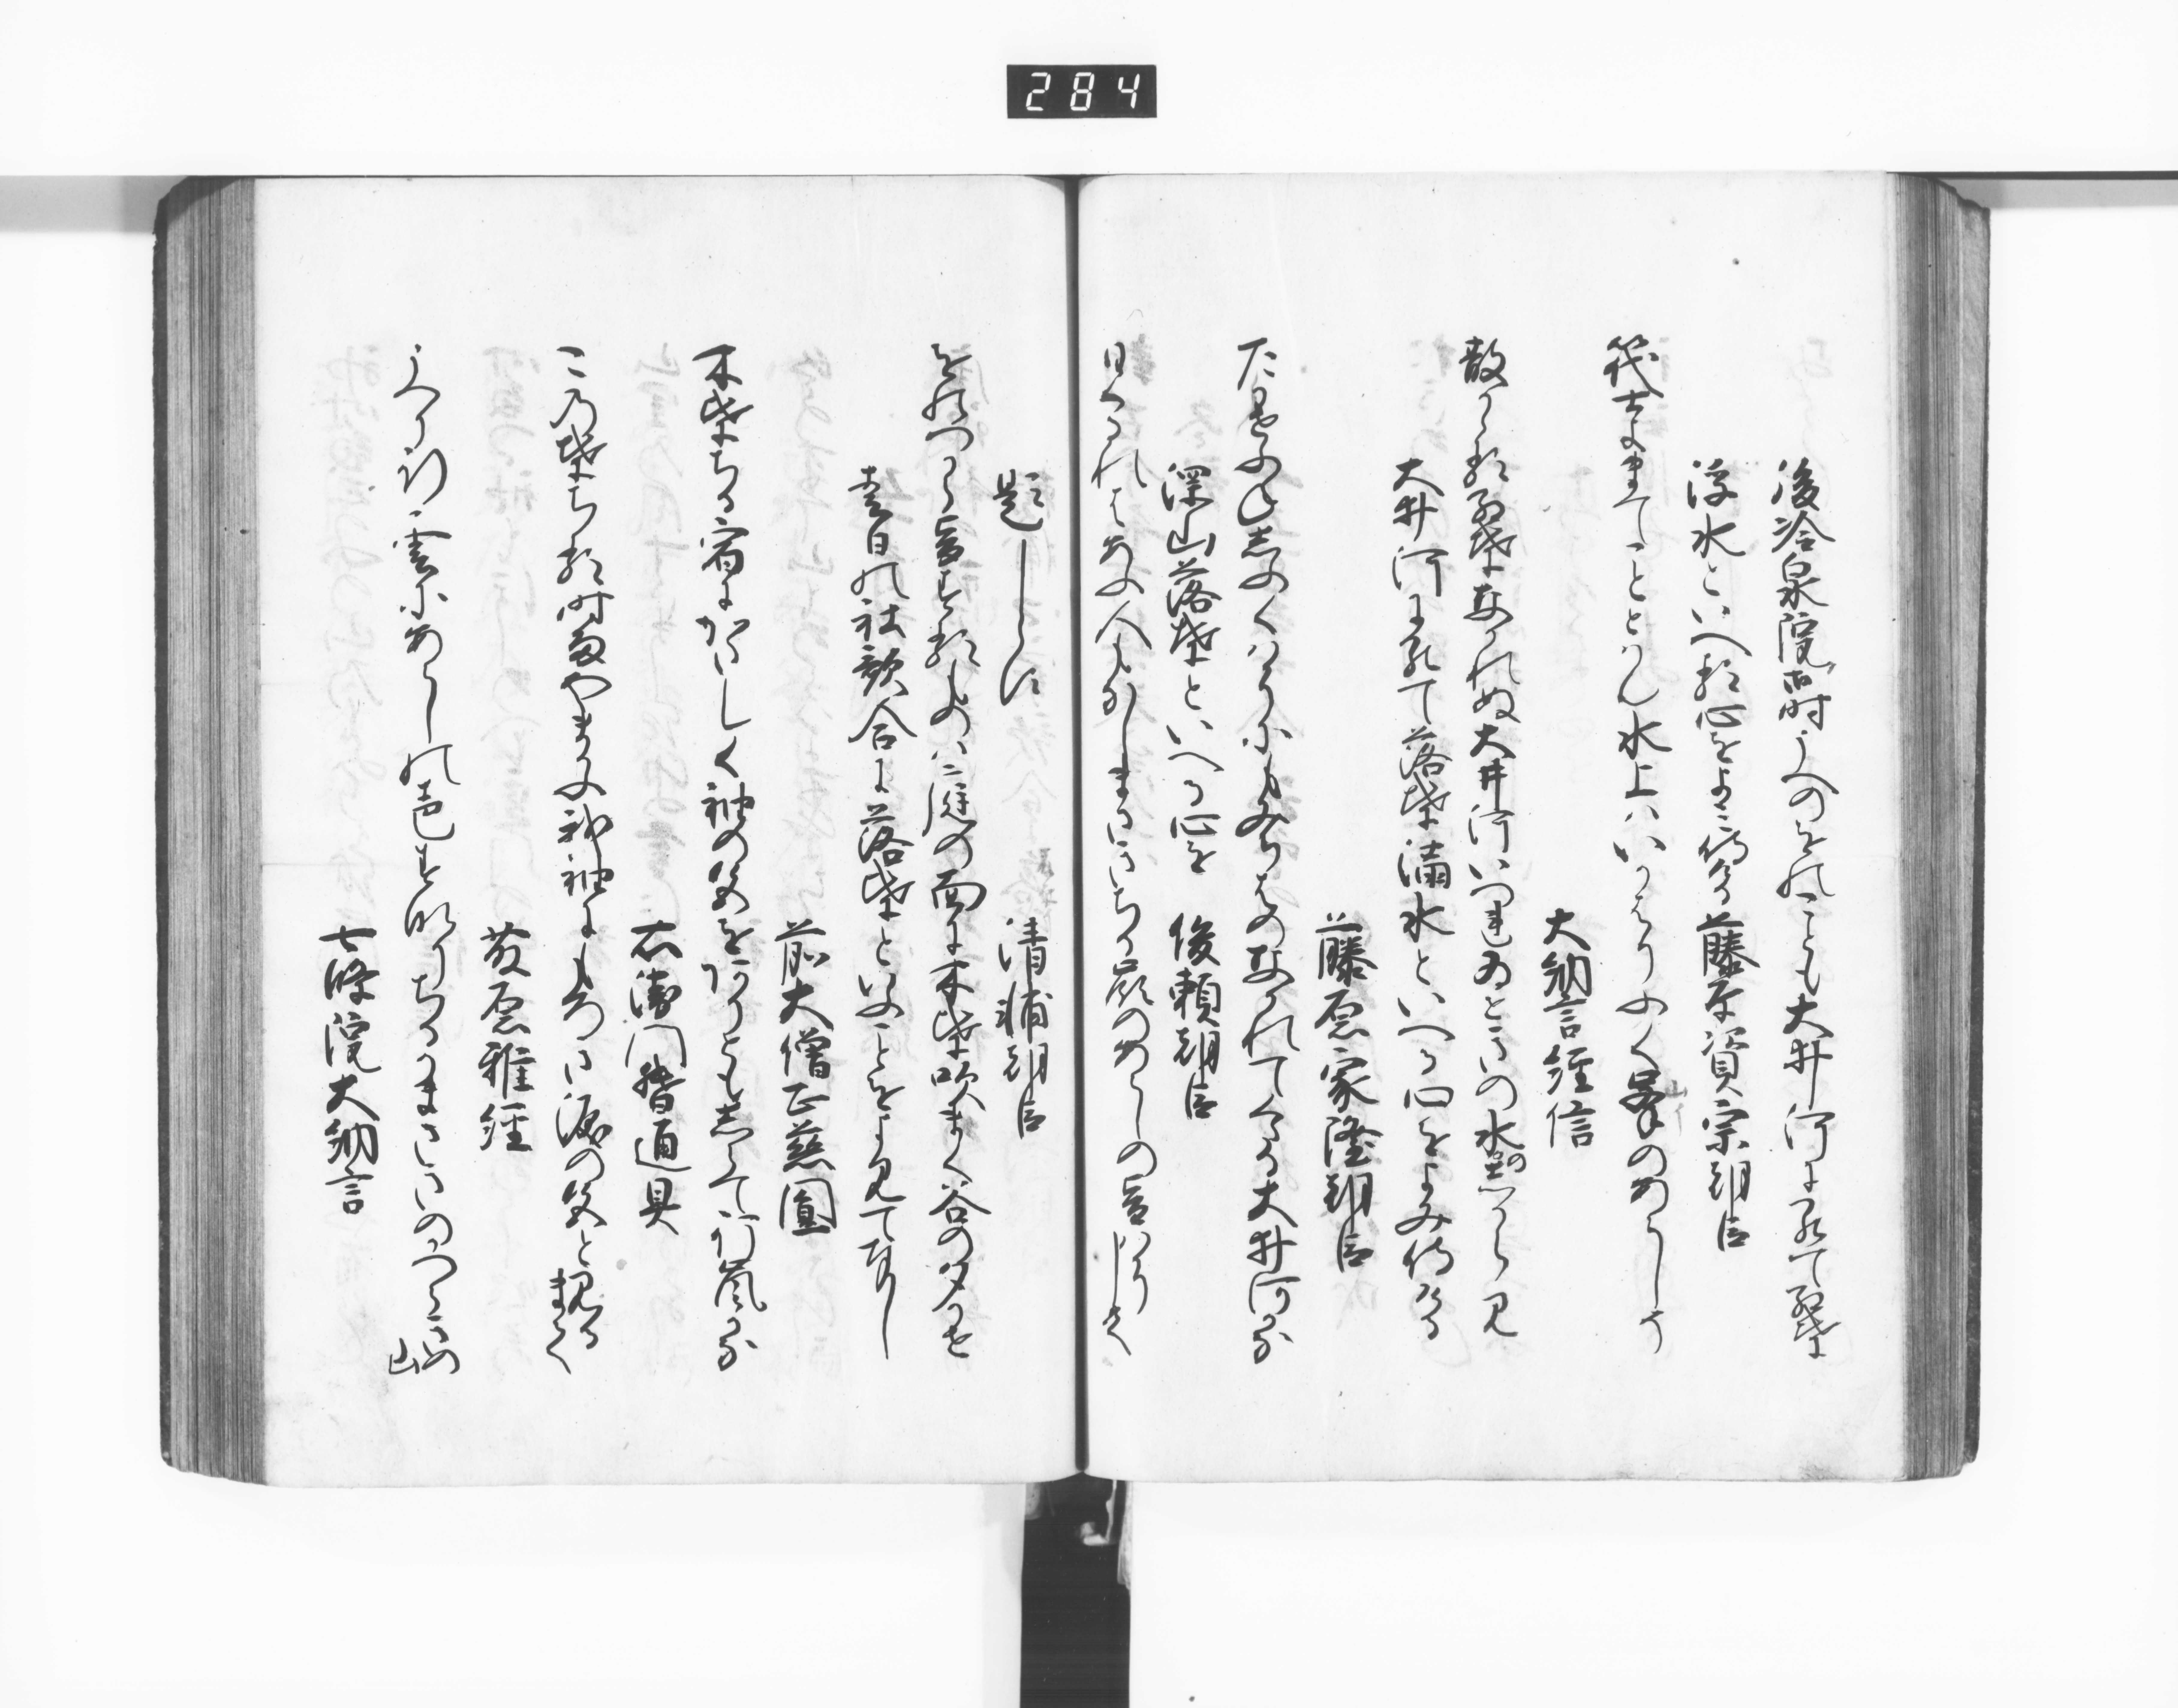 284
後冷泉院御時うへのをのことも大井河にまかりて紅葉
浮水といへる心をよみ侍ける藤原資宗朝臣
筏士よまてこととはん水上はいかはかりふく峯のあらしそ
山イ
大納言経信
散かゝる紅葉なかれぬ大井河いつれゐせきの水のしからみ
大井河にまかりて落葉満水といへる心をよみ侍ける
藤原家隆朝臣
たかせ舟しふくはかりにもみちはのなかれてくたる大井河かな
深山落葉といへる心を 俊頼朝臣
日くるれはあふ人もなしまさ木ちる峯のあらしの音はかりして
題しらす 清輔朝臣
をのつから音する物は庭の面に木葉吹まく谷の夕かせ
春日社歌合に落葉といふことをよみてたてまつりし
前大僧正慈圓
木葉ちる宿にかたしく袖の色をありともしらてゆく嵐かな
右衛門督通具
この葉ちる時雨やまかふ我袖にもろき涙の色と見るまて
藤原雅経
うつり行雲にあらしの声すなりちるかまさきのかつらきの山
七條院大納言